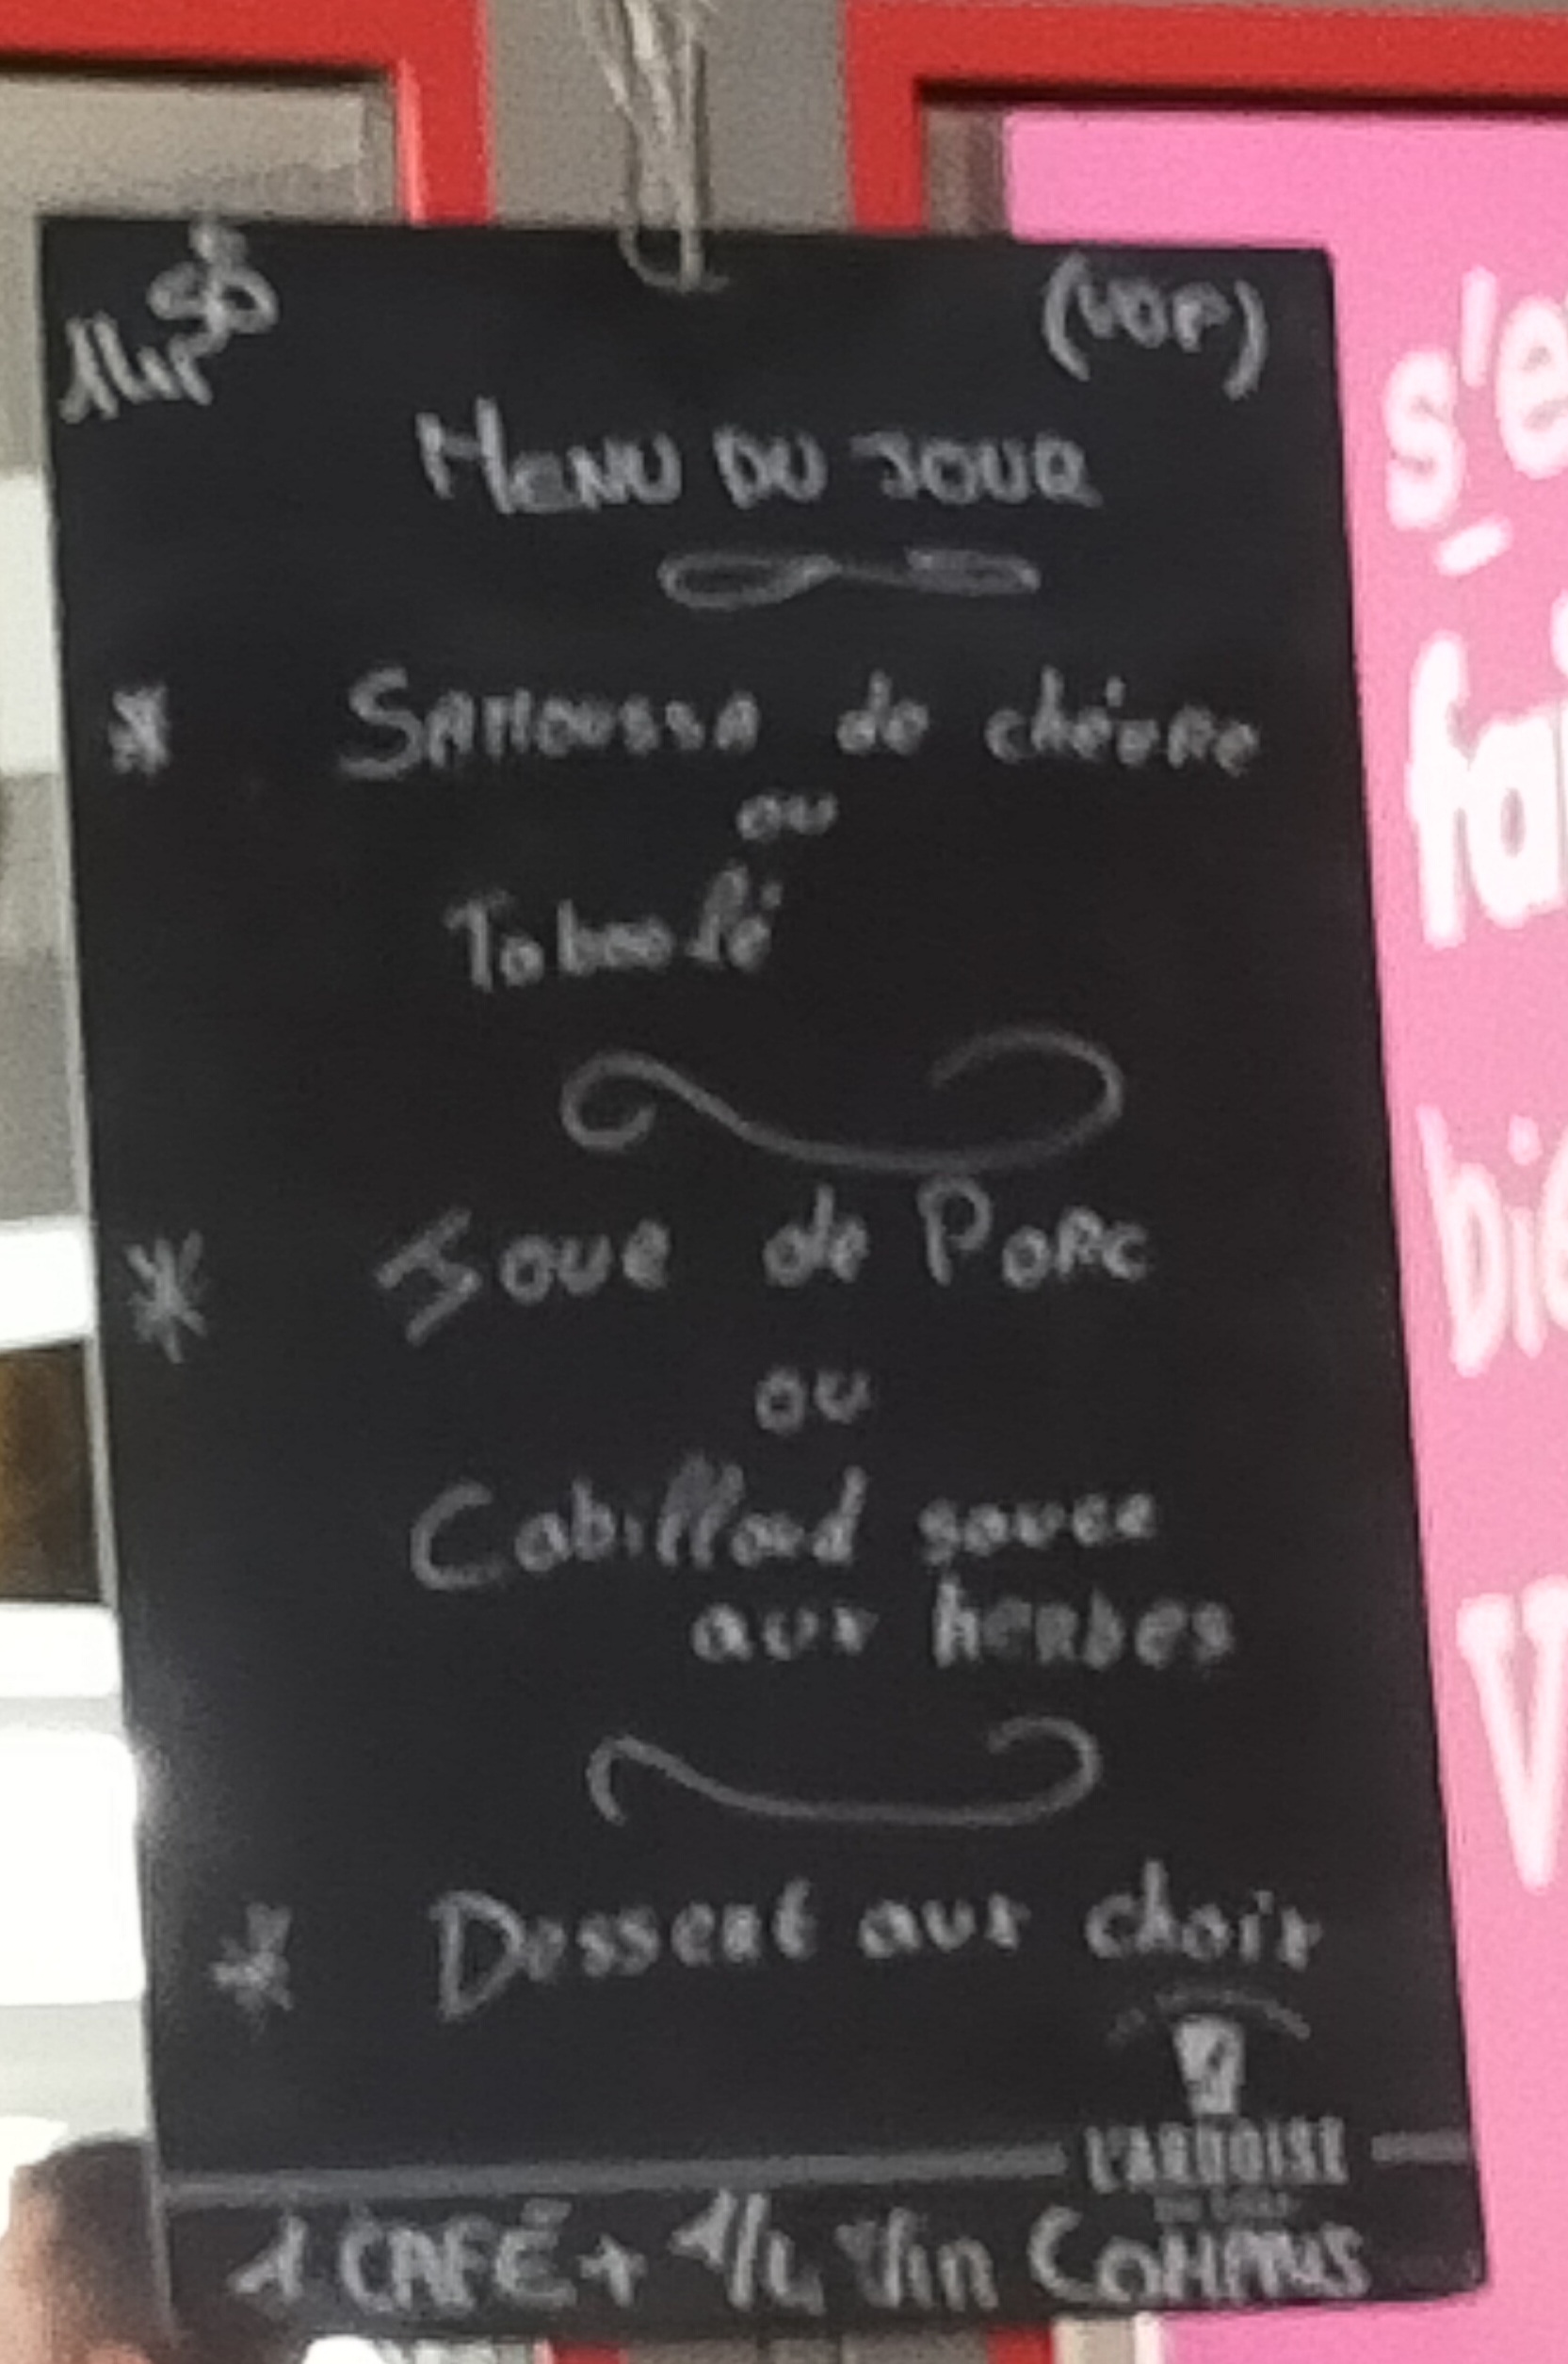 MENU DU JOUR
* SAMOUSSA de chèvre
ou
Taboulé
* Joue de Porc
ou
Cabillaud sauce
aux herbes
* Dessert aux choix
L'ARDOISE
1 CAFÉ + 1/4 Vin COMPRIS
s'e
fai
bie
V